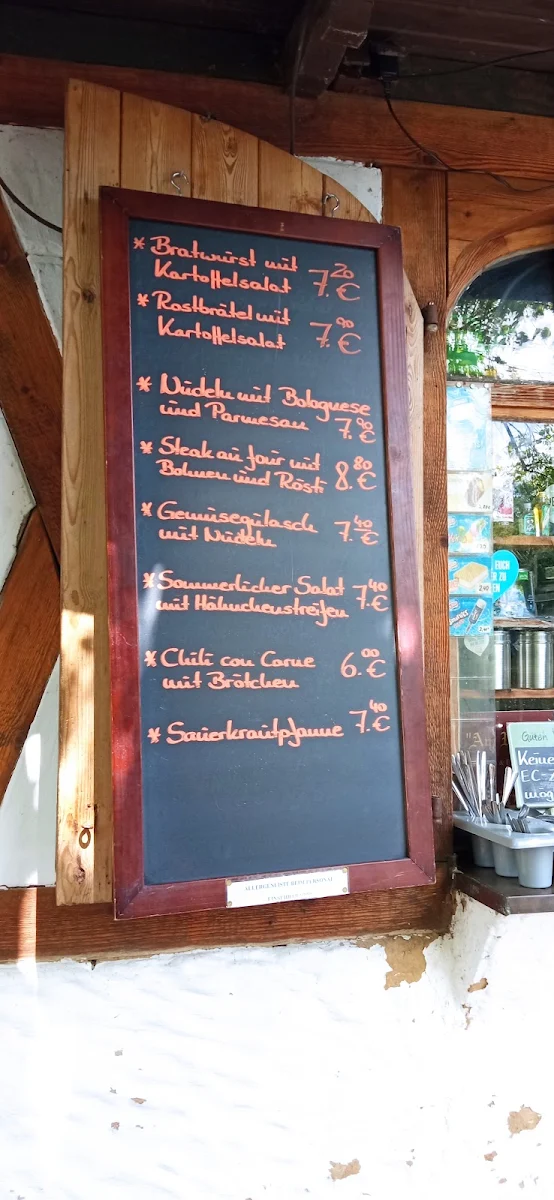 * Bratwurst mit
Kartoffelsalat 7.20 €
* Rostbrätel mit
Kartoffelsalat 7.90 €
* Nudeln mit Bolognese
und Parmesan 7.90 €
* Steak au four mit
Bohnen und Rösti 8.80 €
* Gemüsegulasch
mit Nudeln 7.40 €
* Sommerlicher Salat
mit Hähnchenstreifen 7.40 €
* Chili con Carne
mit Brötchen 6.00 €
* Sauerkrautpfanne 7.40 €
Guten
Keine
EC-Z
mög